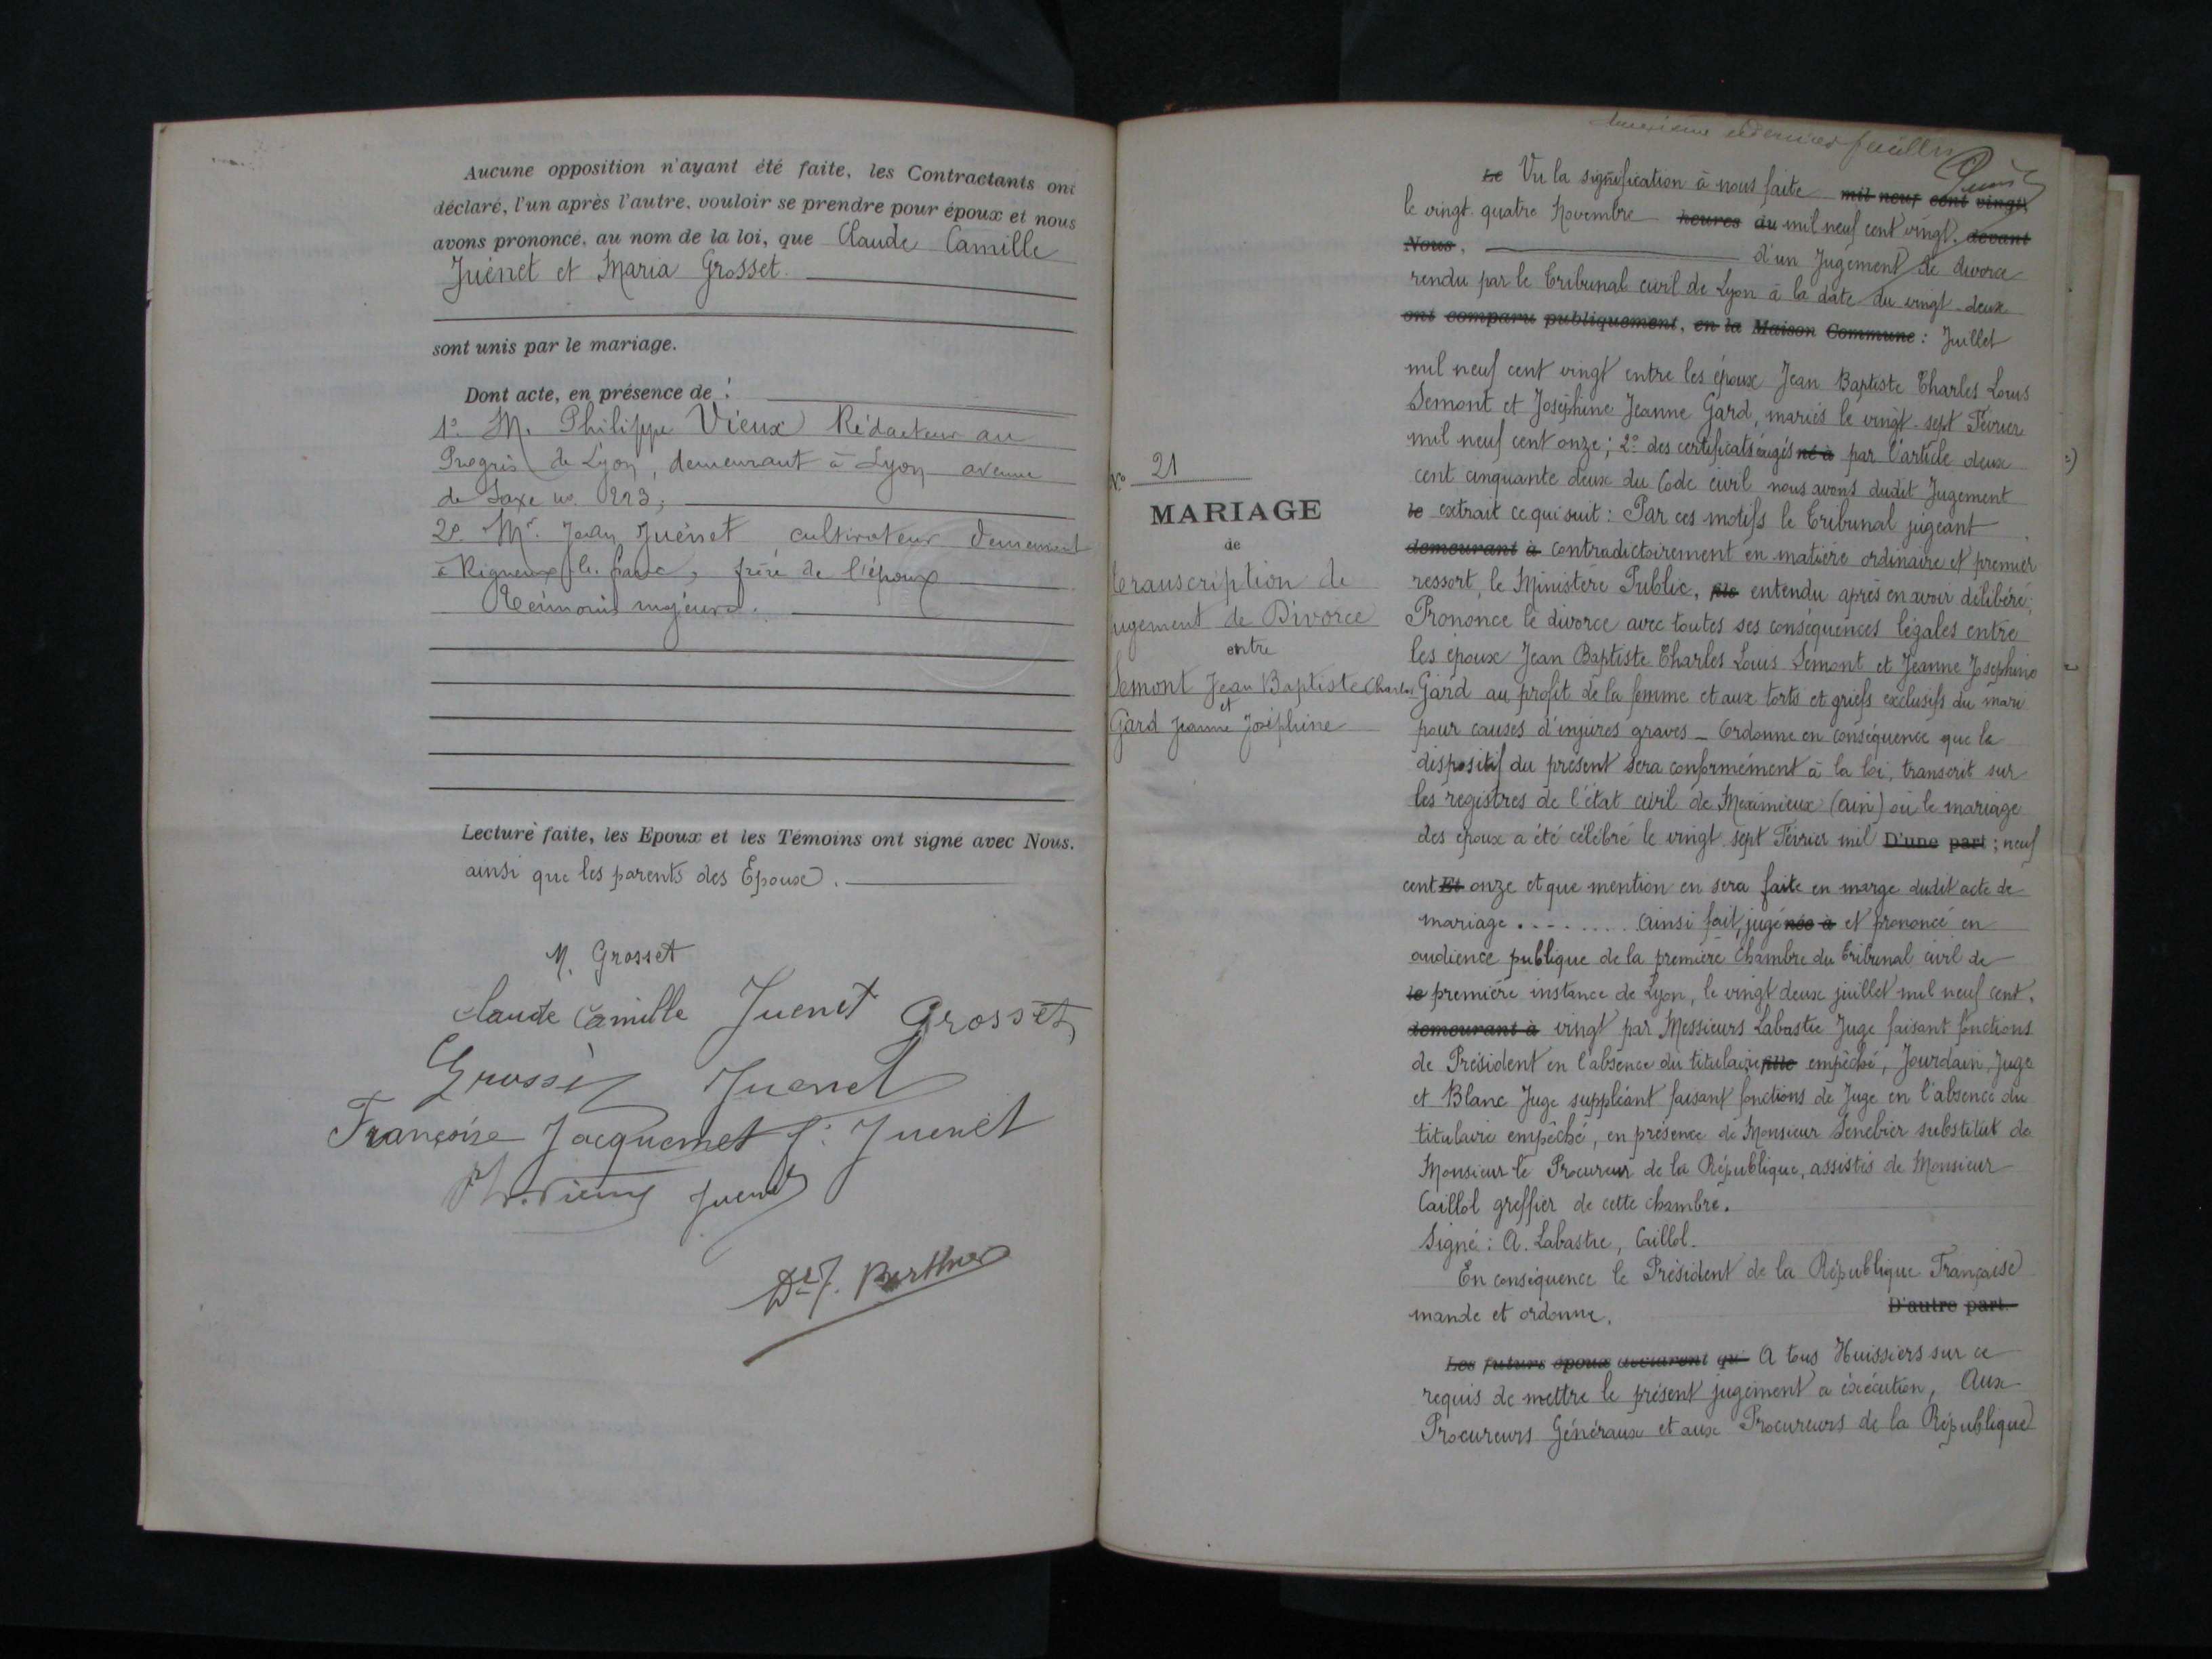 Aucune opposition n'ayant été faite, les Contractants ont
déclaré, l'un après l'autre, vouloir se prendre pour époux et nous
avons prononcé, au nom de la loi, que Claude Camille
Juénet et Maria Grosset.
sont unis par le mariage.
Dont acte, en présence de :
1º M. Philippe Vieux Rédacteur au
Progrès de Lyon, demeurant à Lyon avenue
de Saxe no. 223;
2º Mr. Jean Juénet cultivateur demeurant
à Rigneux le franc, frère de l'époux
Témoins majeurs.
Lecture faite, les Epoux et les Témoins ont signé avec Nous.
ainsi que les parents des Epoux.
M. Grosset
Claude Camille Juenet Grosset
Grosset Juenet
Françoise Jacquemet f: Juenet
Ph. Vieux Juenet
Dr J. Berthier
deuxième et dernier feuillet
Le Vu la signification à nous faite mil neuf cent vingt,
le vingt quatre Novembre heures du mil neuf cent vingt. devant
Nous, d'un Jugement de divorce
rendu par le Tribunal civil de Lyon à la date du vingt-deux
ont comparu publiquement, en la Maison Commune : Juillet
mil neuf cent vingt entre les époux Jean Baptiste Charles Louis
Semont et Joséphine Jeanne Gard, mariés le vingt-sept Février
mil neuf cent onze; 2º des certificats éxigés né à par l'article deux
cent cinquante deux du Code civil nous avons dudit Jugement
le extrait ce qui suit : Par ces motifs le Tribunal jugeant
demeurant à contradictoirement en matière ordinaire et premier
ressort, le Ministère Public, fils entendu après en avoir délibéré;
Prononce le divorce avec toutes ses conséquences légales entre
les époux Jean Baptiste Charles Louis Semont et Jeanne Joséphine
Gard au profit de la femme et aux torts et griefs exclusifs du mari
pour causes d'injures graves _ Ordonne en conséquence que le
dispositif du présent sera conformément à la loi, transcrit sur
les registres de l'état civil de Meximieux (ain) où le mariage
des époux a été célébré le vingt sept Février mil D'une part ; neuf
cent Et onze et que mention en sera faite en marge dudit acte de
mariage . . - . . . . . Ainsi fait, jugé née à et prononcé en
audience publique de la première Chambre du Tribunal civil de
le première instance de Lyon, le vingt deux juillet mil neuf cent.
demeurant à vingt par Messieurs Labastie Juge faisant fonctions
de Président en l'absence du titulaire fille empêché, Jourdain, Juge
et Blanc Juge suppléant faisant fonctions de Juge en l'absence du
titulaire empêché, en présence de Monsieur Senebier substitut de
Monsieur le Procureur de la République, assistés de Monsieur
Caillol greffier de cette chambre.
Signé : A. Labastie, Caillol.
En conséquence le Président de la République Française
mande et ordonne. D'autre part.
Les futurs époux déclarent qu' A tous Huissiers sur ce
requis de mettre le présent jugement à éxécution, Aux
Procureurs Généraux et aux Procureurs de la République
Nº 21
MARIAGE
de
transcription de
jugement de Divorce
entre
Semont Jean Baptiste Charles
et
Gard Jeanne Joséphine